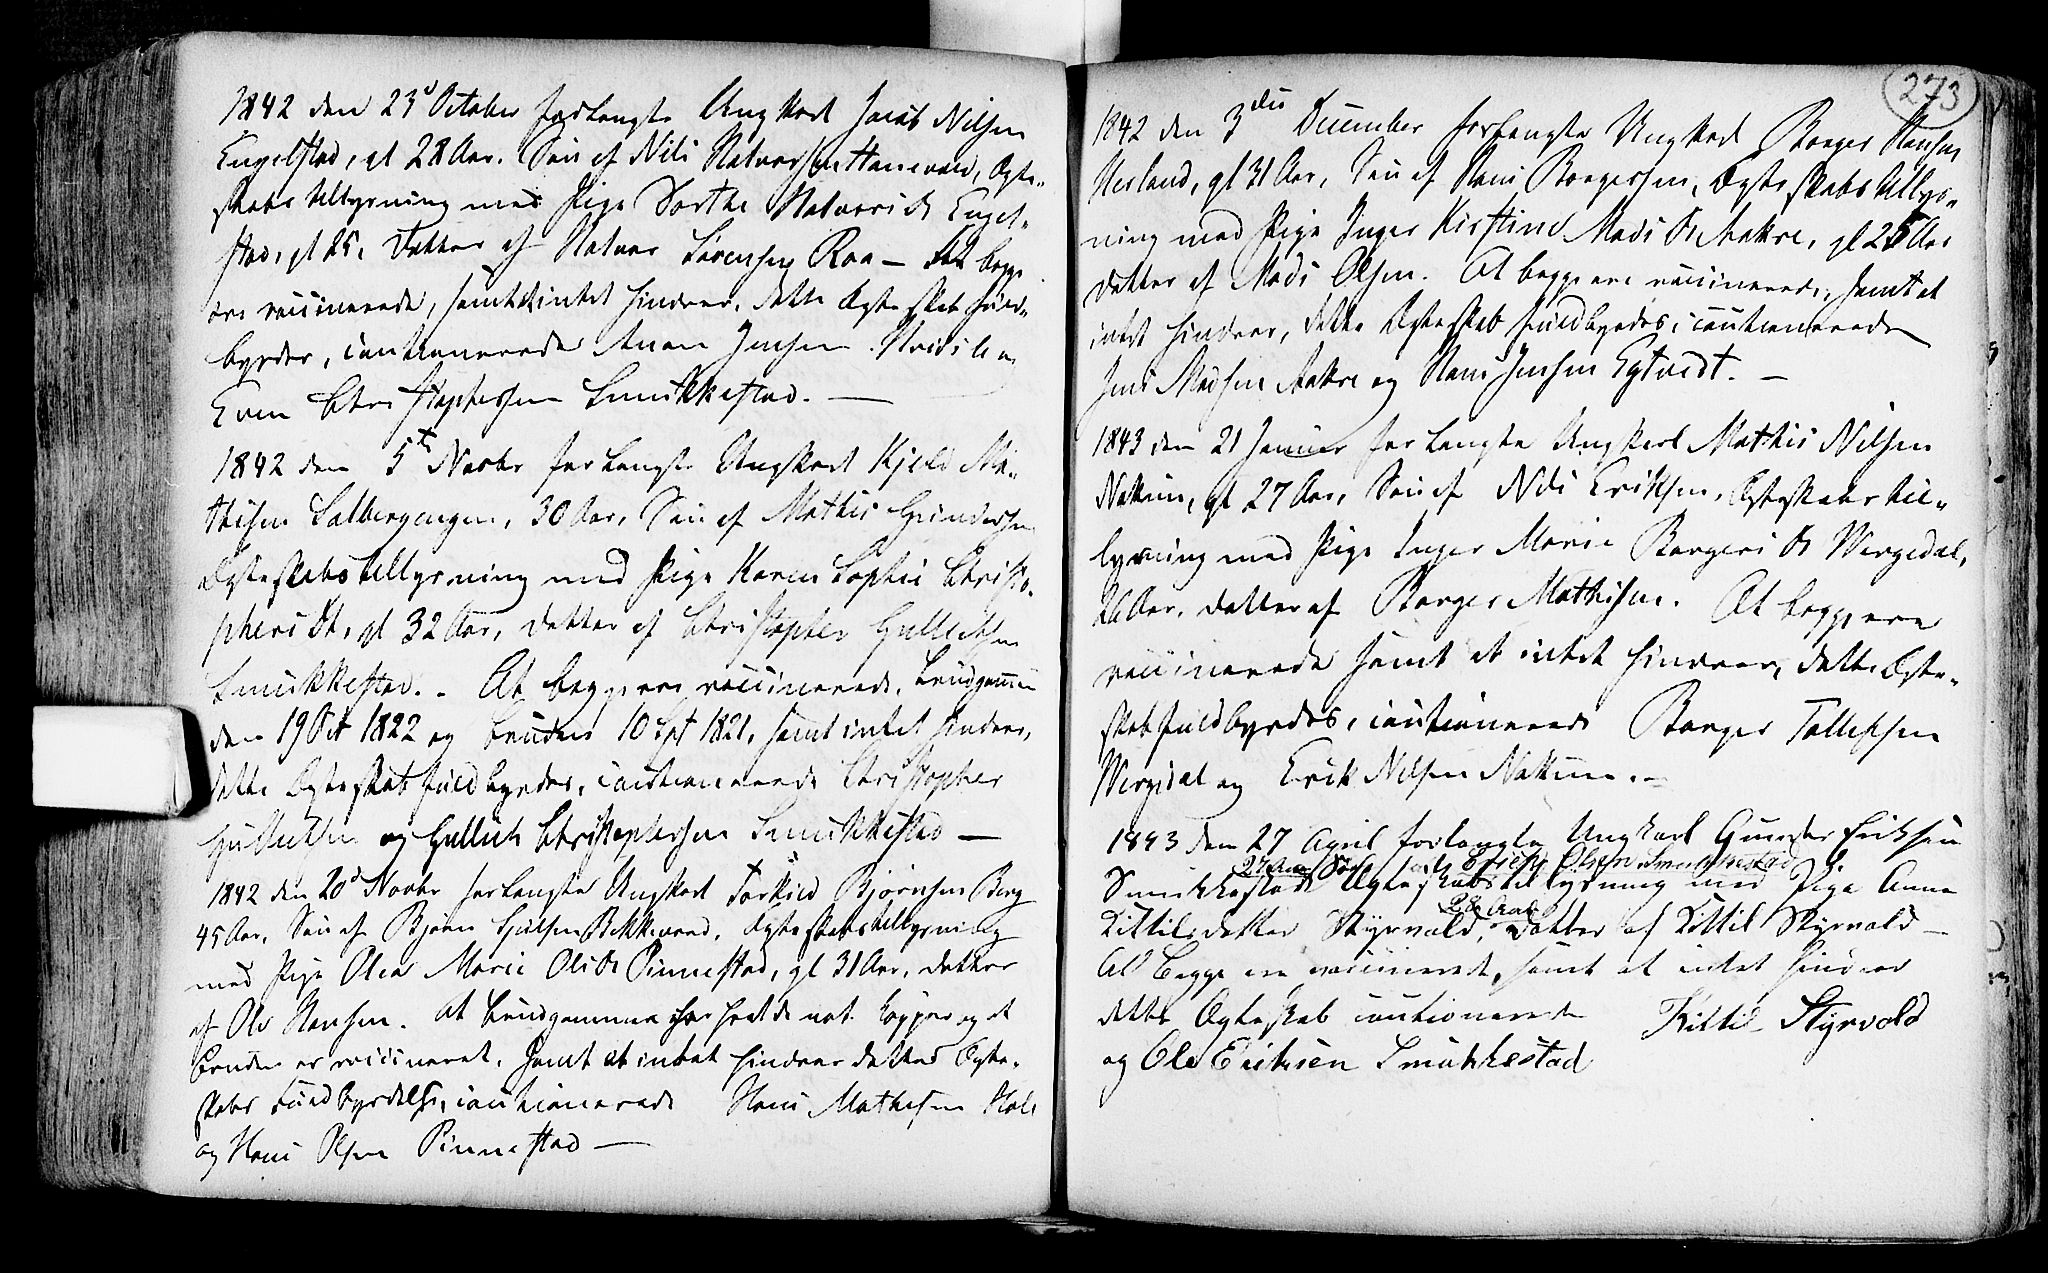 1842 den 23d October forlangte Ungkarl Jacob Nilsen
Engelstad, gl 28 Aar. Søn af Nils Halvorsen Hanevald, Ægte-
skabs tillysning med Pige Dorthe Halvors Dt Engel-
stad, gl 25, Datter af Halvor Sørensen Raa — At begge
ere vaccinerede, samt intet hindrer, dette Ægteskab fuld-
byrdes, cautionerede Jensen og
Even Christophersen Smukkestad. —
1842 den 5t Novbr forlangte Ungkarl Kjeld Ma-
thisen Salbergengen, 30 Aar, Søn af Mathis Gundersen
Ægteskabs tillysning med Pige Karen Sophie Christo-
phers Dt, gl 32 Aar, Datter af Christopher Gullichsen
Smukkestad. - At begge ere vaccinerede, Brudgommen
den 19 Oct 1822 og Bruden 10 Spt 1821, samt intet hindrer,
dette Ægteskab fuldbyrdes, cautionerede Christopher
Gullichsen og Gullich Christophersen Smukkestad —
1842 den 20d Novbr forlangte Ungkarl Torkild Bjørnsen Berg
45 Aar, Søn af Bjørn Bekkevard, Ægteskabs tillysning
med Pige Olea Marie Ols Dt Pinnestad, gl 31 Aar, Datter
af Ole Hansen. At Brudgommen har havt de nat. Kopper og at
Bruden er vaccineret, samt at intet hindrer dettes Ægte-
skabs Fuldbyrdelse, cautionerede Hans Mathisen Hole
og Hans Olsen Pinnestad —
273
1842 den 3die December forlangte Ungkarl Borger Hansen
Nesland, gl 31 Aar, Søn af Hans Borgersen, Ægteskabs tillys-
ning med Pige Inger Kirstine Mads Dt Aakre, gl 25 Aar
Datter af Mads Olsen. At begge ere vaccinerede, samt at
intet hindrer, dette Ægteskab fuldbyrdes, cautionerede
Jens Madsen Aakre og Hans Jensen Egtvedt. —
1843 den 21 Januar forlangte Ungkarl Mathis Nilsen
Nakkim, gl 27 Aar, Søn af Nils Eriksen, Ægteskabs til-
lysning med Pige Inger Marie Borgers Dt Wergedal,
26 Aar, Datter af Borger Mathisen. At begge ere
vaccinerede samt at intet hindrer, dette Ægte-
skab fuldbyrdes, cautionerede Borger Tollefsen
Wergedal og Erik Nilsen Nakkim. —
1843 den 27 April forlangte Ungkarl Gunder Eriksen
27 Aar Søn af Erich Olsen Smukkestad
Smukkestad Ægteskabs tillysning med Pige Anne
28 Aar
Kittilsdatter Styrvold, Datter af Kittil Styrvold —
At begge ere vaccineret, samt at intet hindrer
dette Ægteskab cautionerede Kittil Styrvold
og Ole Erichsen Smukkestad